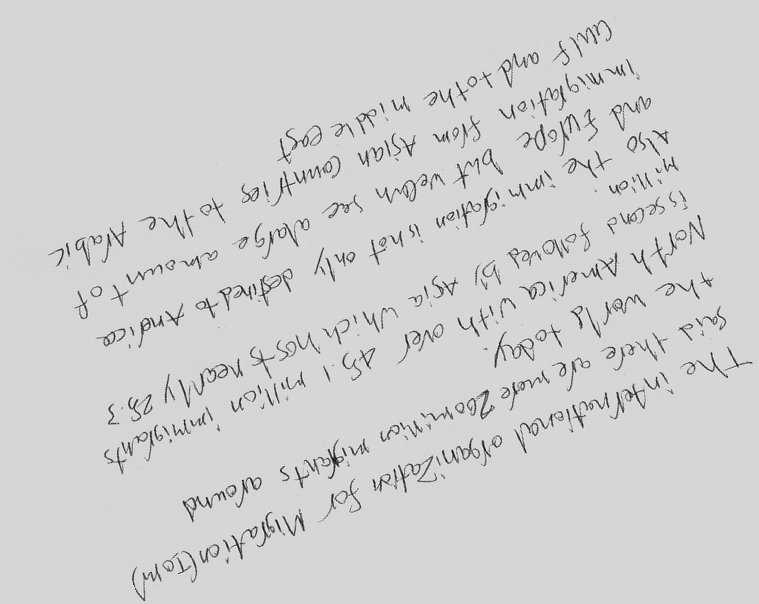 The international organization for Migration(Iom)
said there are more 200 million migrants around
the world today.
North America with over 45.1 million immigrants
is second followed by Asia which hosts nearly 25.3
million.
Also the immigration is not only defined to America
and Europe but we can see alarge amount of
immigration from Asian countries to the Arabic
Gulf and to the middle east